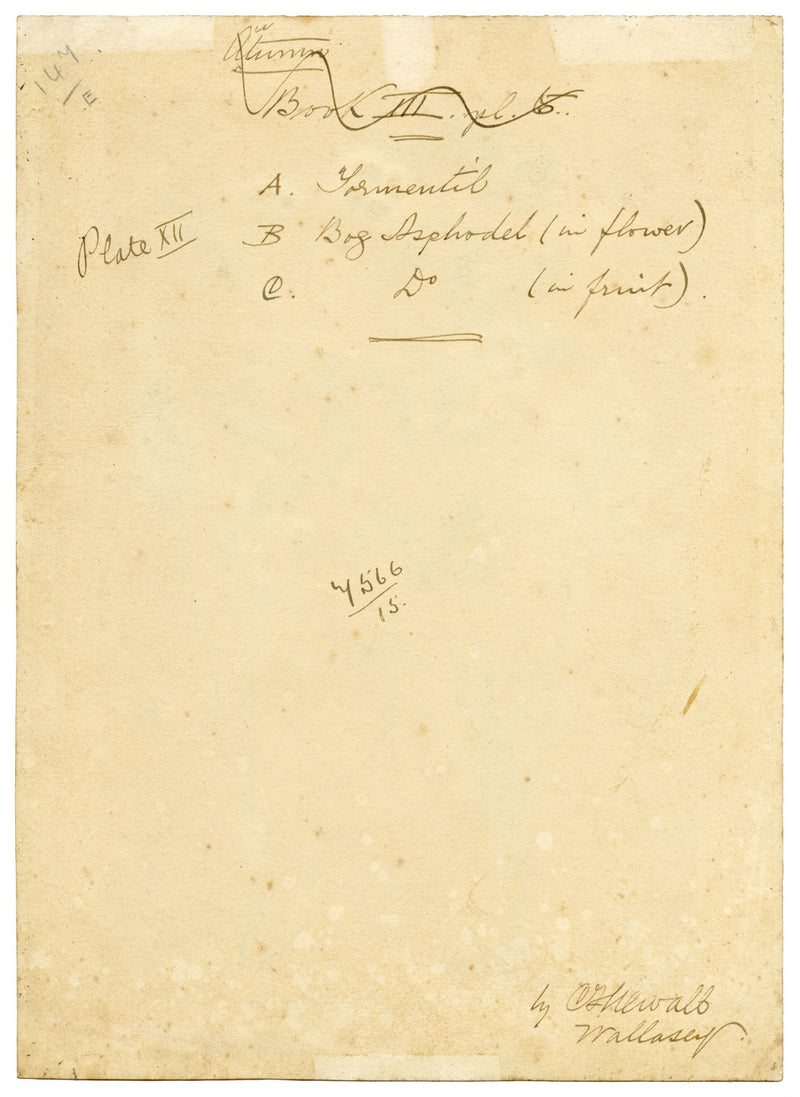 147/E
Autumn
Book III. pl. 6.
A. Tormentil
Plate XII
B Bog Asphodel (in flower)
C. Do (in fruit).
566
15.
by C F Newall
Wallasey.